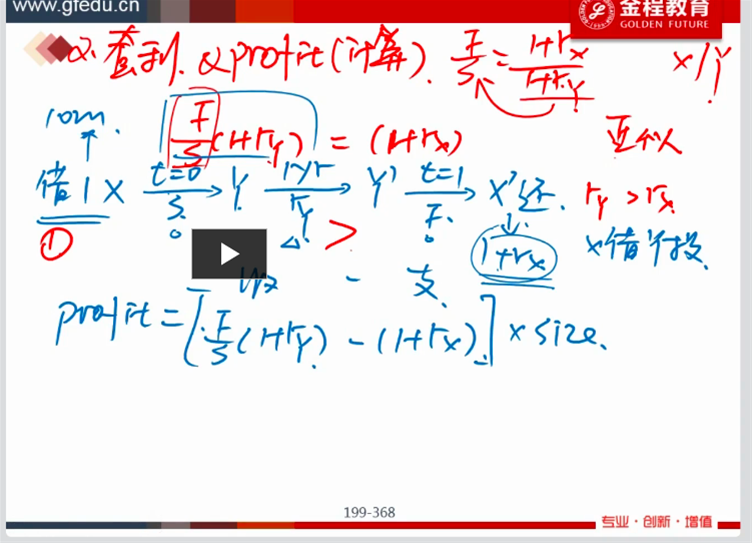 www.gfedu.cn
金程教育
GOLDEN FUTURE
Q. 套利. & profit(计算). F/S = (1+rx)/(1+ry) x/y
10m.
F/S (1+ry) = (1+rx)
借1 X t=0 S. Y 1yr ry Y' t=1 F. X' 还.
① > 1+rx
ry > rx
x借 y投.
收 - 支.
profit = [F/S (1+ry) - (1+rx)] × size.
199-368
专业·创新·增值